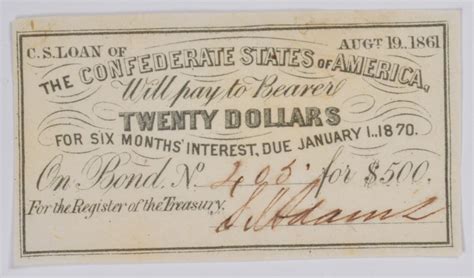 C.S. LOAN OF AUGT 19., 1861
THE CONFEDERATE STATES OF AMERICA,
Will pay to Bearer
TWENTY DOLLARS
FOR SIX MONTHS' INTEREST, DUE JANUARY 1., 1870.
On Bond, No. 405. for $500.
For the Register of the Treasury.
Adams